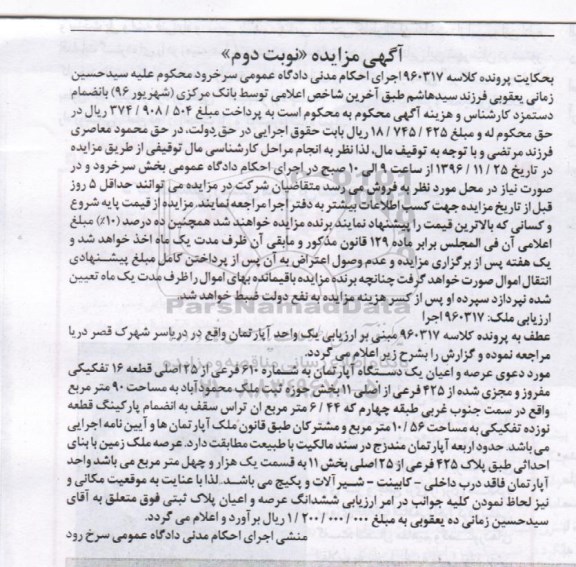 آگهی مزایده «نوبت دوم»
بحکایت پرونده کلاسه ۹۶۰۳۱۷ اجرای احکام مدنی دادگاه عمومی سرخرود محکوم علیه سیدحسین
زمانی یعقوبی فرزند سیدهاشم طبق آخرین شاخص اعلامی توسط بانک مرکزی (شهریور ۹۶) بانضمام
دستمزد کارشناس و هزینه آگهی محکوم به محکوم است به پرداخت مبلغ ۵۰۴ / ۹۰۸ / ۳۷۴ ریال در
حق محکوم له و مبلغ ۴۲۵ / ۷۴۵ / ۱۸ ریال بابت حقوق اجرایی در حق دولت، در حق محمود معاصری
فرزند مرتضی و با توجه به توقیف مال، لذا نظر به انجام مراحل کارشناسی مال توقیفی از طریق مزایده
در تاریخ ۲۵ / ۱۱ / ۱۳۹۶ از ساعت ۹ الی ۱۰ صبح در اجرای احکام دادگاه عمومی بخش سرخرود و در
صورت نیاز در محل مورد نظر به فروش می رسد متقاضیان شرکت در مزایده می توانند حداقل ۵ روز
قبل از تاریخ مزایده جهت کسب اطلاعات بیشتر به دفتر اجرا مراجعه نمایند. مزایده از قیمت پایه شروع
و کسانی که بالاترین قیمت را پیشنهاد نمایند برنده مزایده خواهند شد همچنین ده درصد (۱۰٪) مبلغ
اعلامی آن فی المجلس برابر ماده ۱۲۹ قانون مذکور و مابقی آن ظرف مدت یک ماه اخذ خواهد شد و
یک هفته پس از برگزاری مزایده و عدم وصول اعتراض به آن پس از پرداختن کامل مبلغ پیشنهادی
انتقال اموال صورت خواهد گرفت چنانچه برنده مزایده باقیمانده بهای اموال را ظرف مدت یک ماه تعیین
شده نپردازد سپرده او پس از کسر هزینه مزایده به نفع دولت ضبط خواهد شد.
ارزیابی ملک: ۹۶۰۳۱۷ اجرا
عطف به پرونده کلاسه ۹۶۰۳۱۷ مبنی بر ارزیابی یک واحد آپارتمان واقع در دریاسر شهرک قصر دریا
مراجعه نموده و گزارش را بشرح زیر اعلام می گردد.
مورد دعوی عرصه و اعیان یک دستگاه آپارتمان به شماره ۶۱۰ فرعی از ۲۵ اصلی قطعه ۱۶ تفکیکی
مفروز و مجزی شده از ۴۲۵ فرعی از اصلی ۱۱ بخش حوزه ثبت ملک محمودآباد به مساحت ۹۰ متر مربع
واقع در سمت جنوب غربی طبقه چهارم که ۴۴ / ۶ متر مربع ان تراس سقف به انضمام پارکینگ قطعه
نوزده تفکیکی به مساحت ۵۶ / ۱۰ متر مربع و مشترکان طبق قانون ملک آپارتمان ها و آیین نامه اجرایی
می باشد. حدود اربعه آپارتمان مندزج در سند مالکیت با طبیعت مطابقت دارد. عرصه ملک زمین با بنای
احداثی طبق پلاک ۴۲۵ فرعی از ۲۵ اصلی بخش ۱۱ به قسمت یک هزار و چهل متر مربع می باشد واحد
آپارتمان فاقد درب داخلی - کابینت - شیر آلات و پکیچ می باشد. لذا با عنایت به موقعیت مکانی و
نیز لحاظ نمودن کلیه جوانب در امر ارزیابی ششدانگ عرصه و اعیان پلاک ثبتی فوق متعلق به آقای
سیدحسین زمانی ده یعقوبی به مبلغ ۰۰۰ / ۰۰۰ / ۲۰۰ / ۱ ریال برآورد و اعلام می گردد.
منشی اجرای احکام مدنی دادگاه عمومی سرخ رود
ParsNamadData